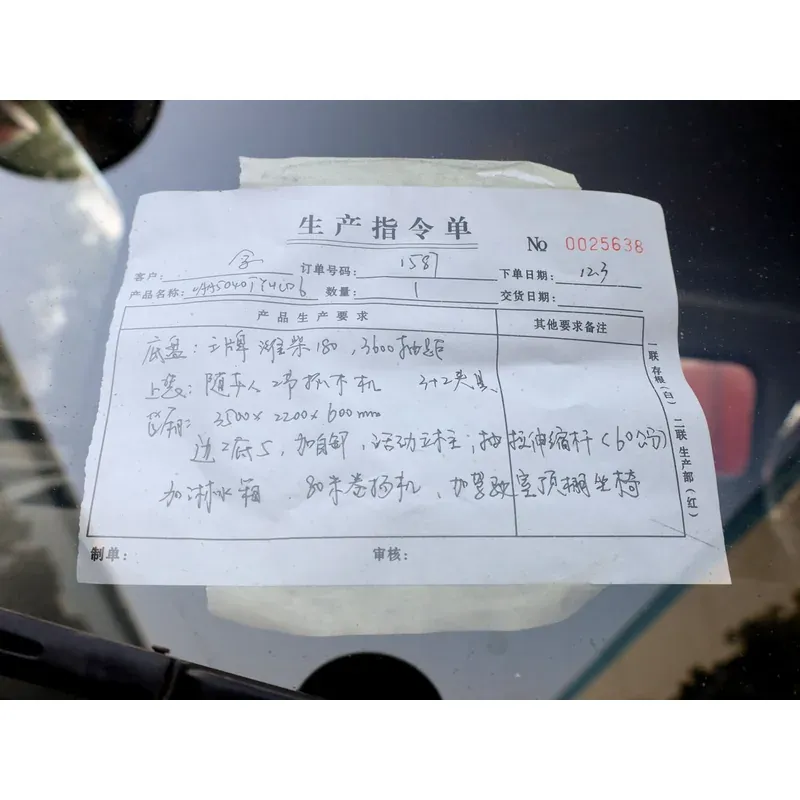 生产指令单
No 0025638
客户: 订单号码: 1587 下单日期: 12.3
产品名称: 数量: 1 交货日期:
产品生产要求 其他要求备注
底盘: 王牌 潍柴180, 3600轴距
上装: 随车人 2节抓木机 3+2夹具
货厢: 3500×2200×600mm
边2底5, 加自卸, 活动立柱; 抽拉伸缩杆(60公分)
加淋水箱 80米卷扬机, 加驾驶室顶棚坐椅
制单: 审核:
一联 存根(白) 二联 生产部(红)